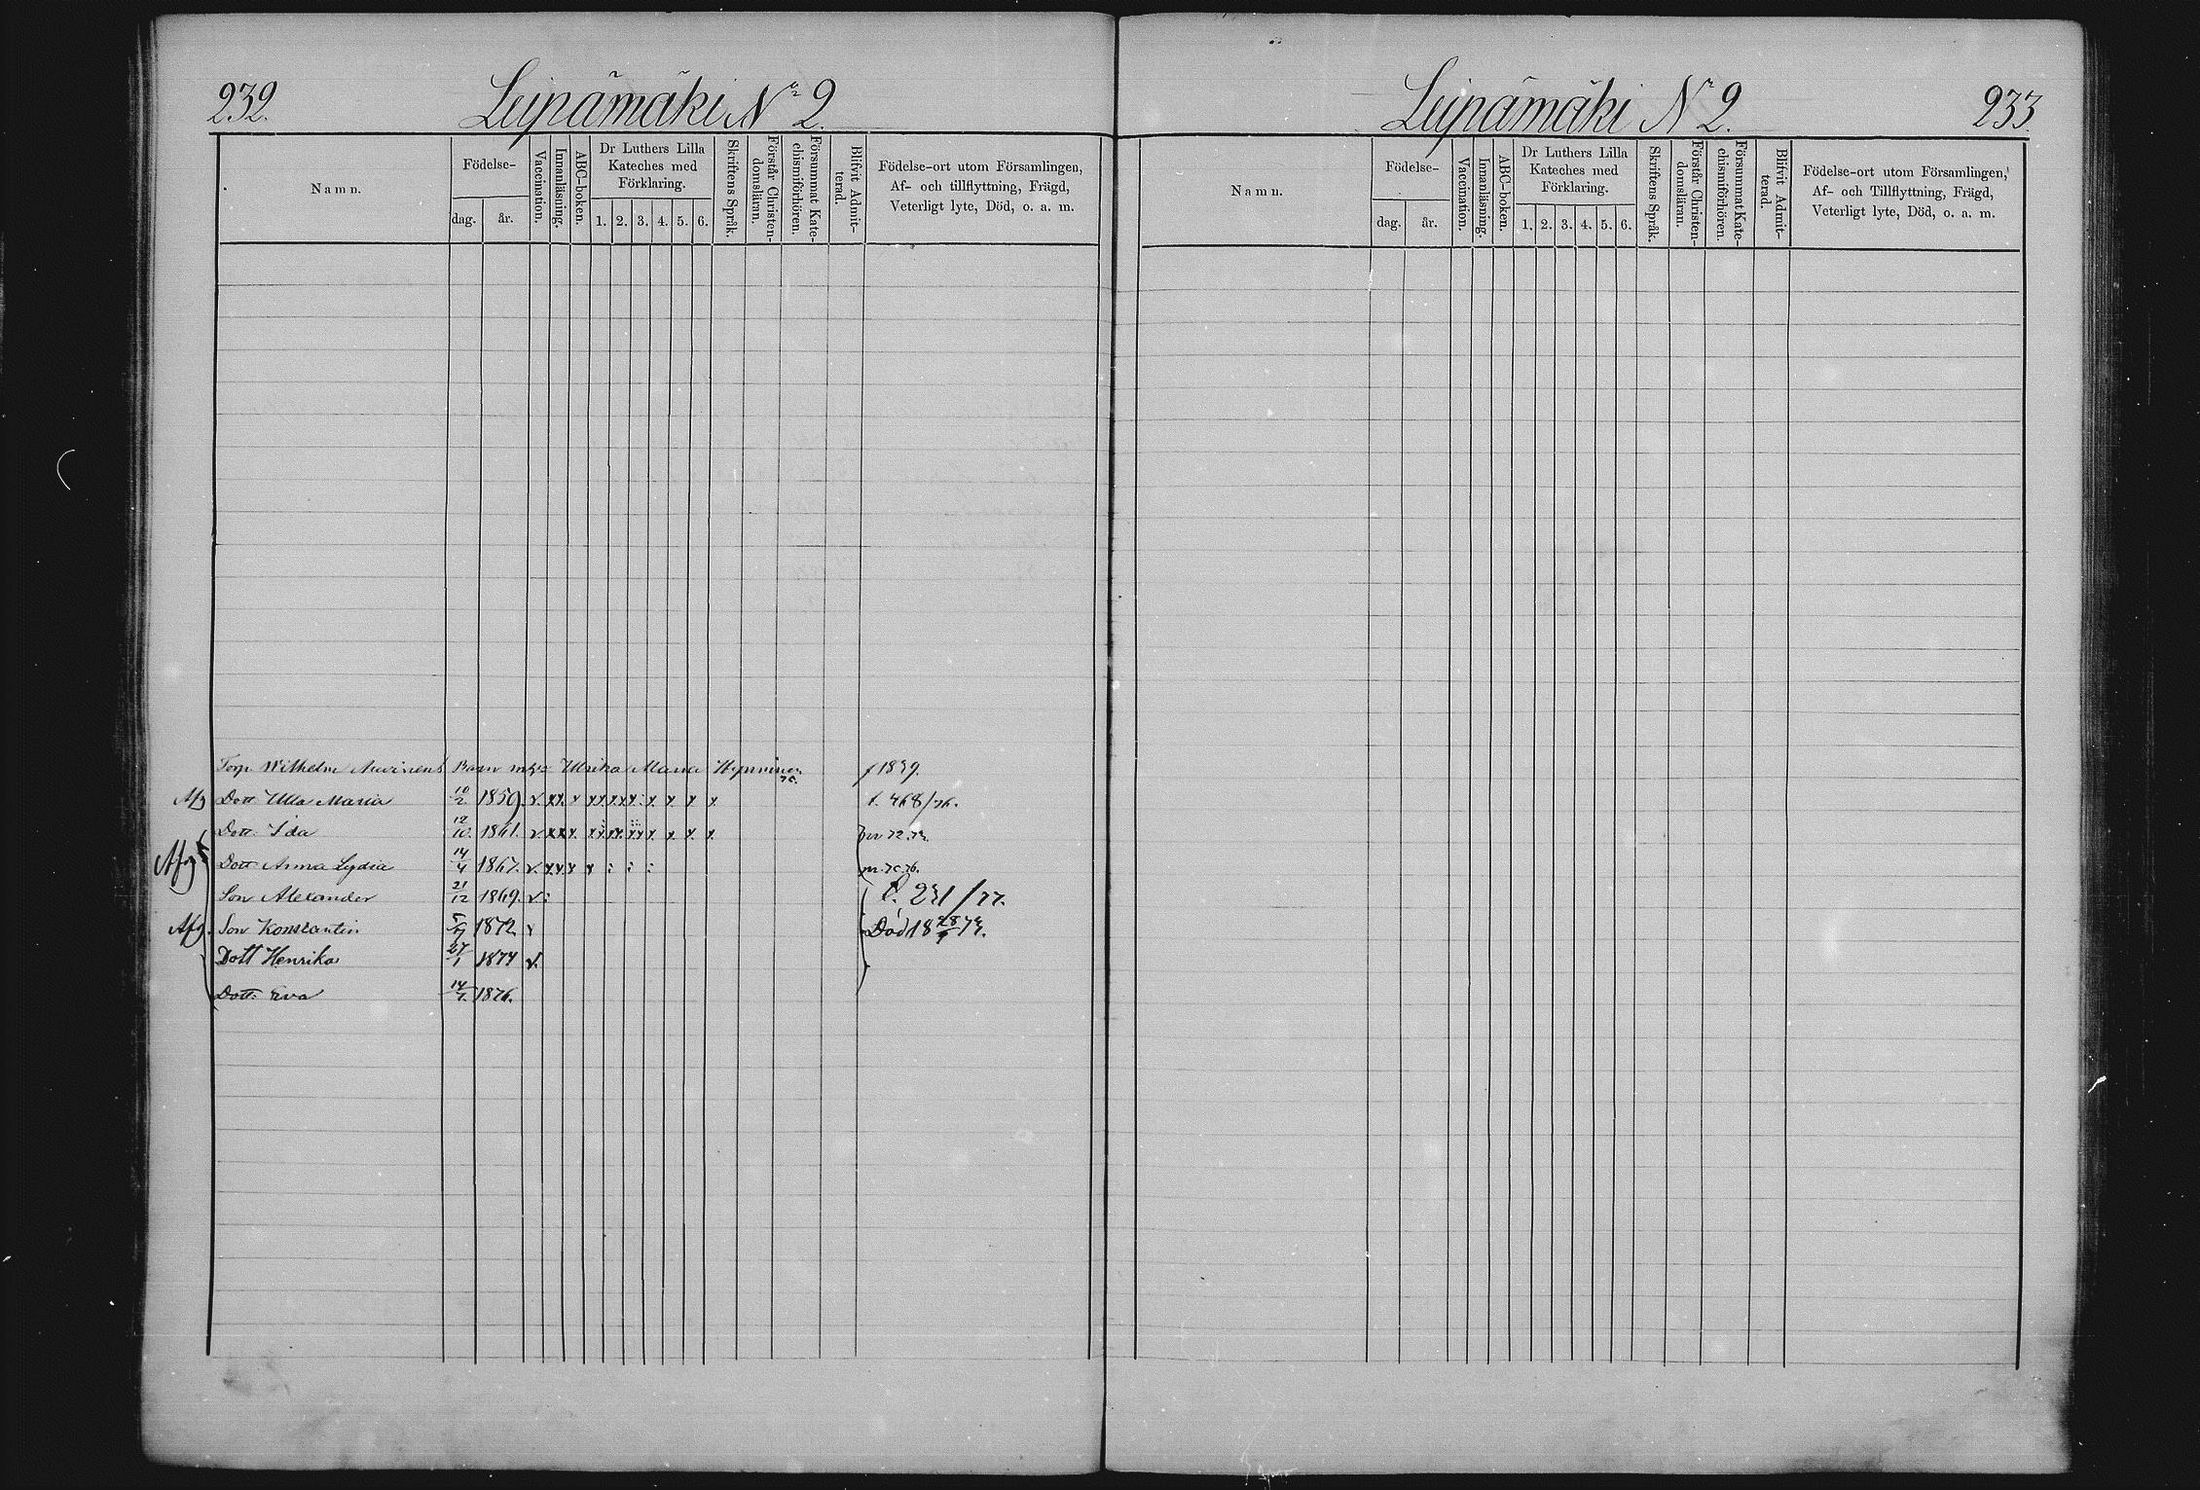 232.
Leipämäki No 2.
Namn.
Födelse-
dag.
år.
Vaccination.
Innanläsning.
ABC-boken.
Dr Luthers Lilla
Kateches med
Förklaring.
1. 2. 3. 4. 5. 6.
Skriftens Språk.
Förstår Christen-
domsläran.
Försummat Kate-
chismiförhören.
Blifvit Admit-
terad.
Födelse-ort utom Församlingen,
Af- och tillflyttning, Frägd,
Veterligt lyte, Död, o. a. m.
Torp Wilhelm Barn Ulrika Maria f 1839.
Afg Dott Ulla Maria 10/2 1859. v. x x x x x x x x x x x p. 468/76.
Dott. Ida 12/10. 1861. v x x x x x x x x x x x 72.73.
Afg Dott Anna Lydia 14/4 1867. v. x x x x : : :
Son Alexander 21/12 1869. v : p. 231/77.
Afg. Son Konstantin 5/7 1872 v Död 18 28/9 73.
Dott Henrika 27/1 1874 v.
Dott. Eva 14/7. 1876.
Leipämäki No 2.
233.
Namn.
Födelse-
dag.
år.
Vaccination.
Innanläsning.
ABC-boken.
Dr Luthers Lilla
Kateches med
Förklaring.
1. 2. 3. 4. 5. 6.
Skriftens Språk.
Förstår Christen-
domsläran.
Försummat Kate-
chismiförhören.
Blifvit Admit-
terad.
Födelse-ort utom Församlingen,
Af- och Tillflyttning, Frägd,
Veterligt lyte, Död, o. a. m.